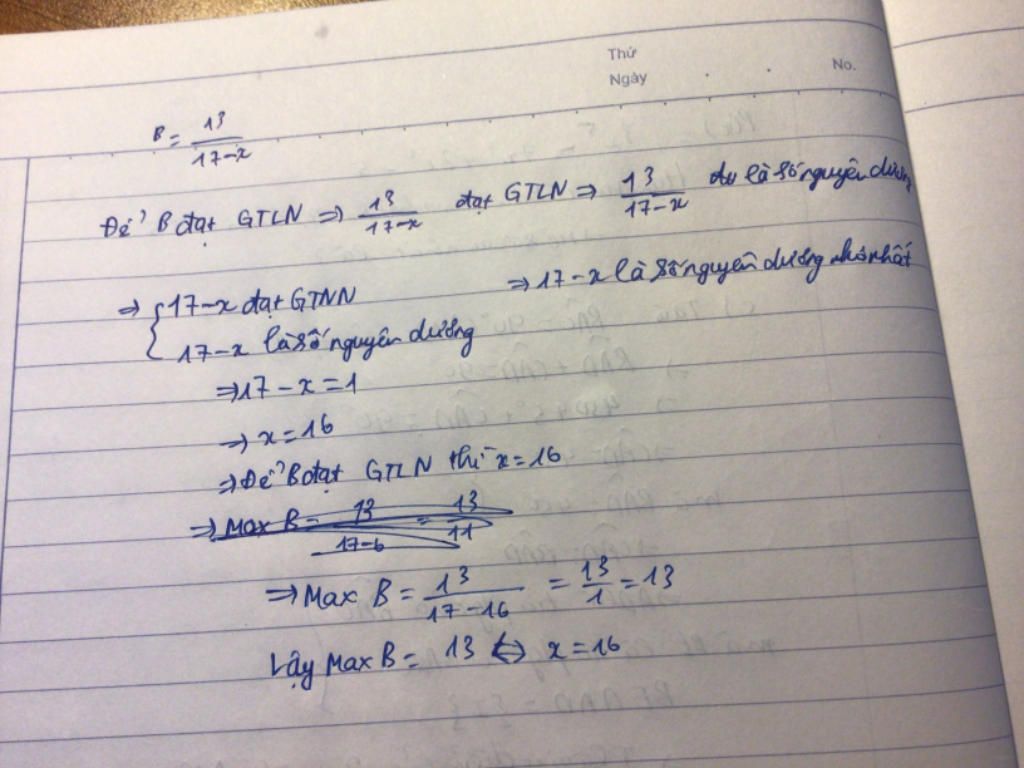 Thứ
Ngày
No.
B = 13/(17-x)
Để B đạt GTLN ⇒ 13/(17-x) đạt GTLN ⇒ 13/(17-x) là số nguyên dương
⇒ { 17-x đạt GTNN ⇒ 17-x là số nguyên dương nhỏ nhất
17-x là số nguyên dương
⇒ 17-x = 1
⇒ x = 16
⇒ Để B đạt GTLN thì x = 16
⇒ Max B = 13/(17-6) = 13/11
⇒ Max B = 13/(17-16) = 13/1 = 13
Vậy Max B = 13 ⇔ x = 16